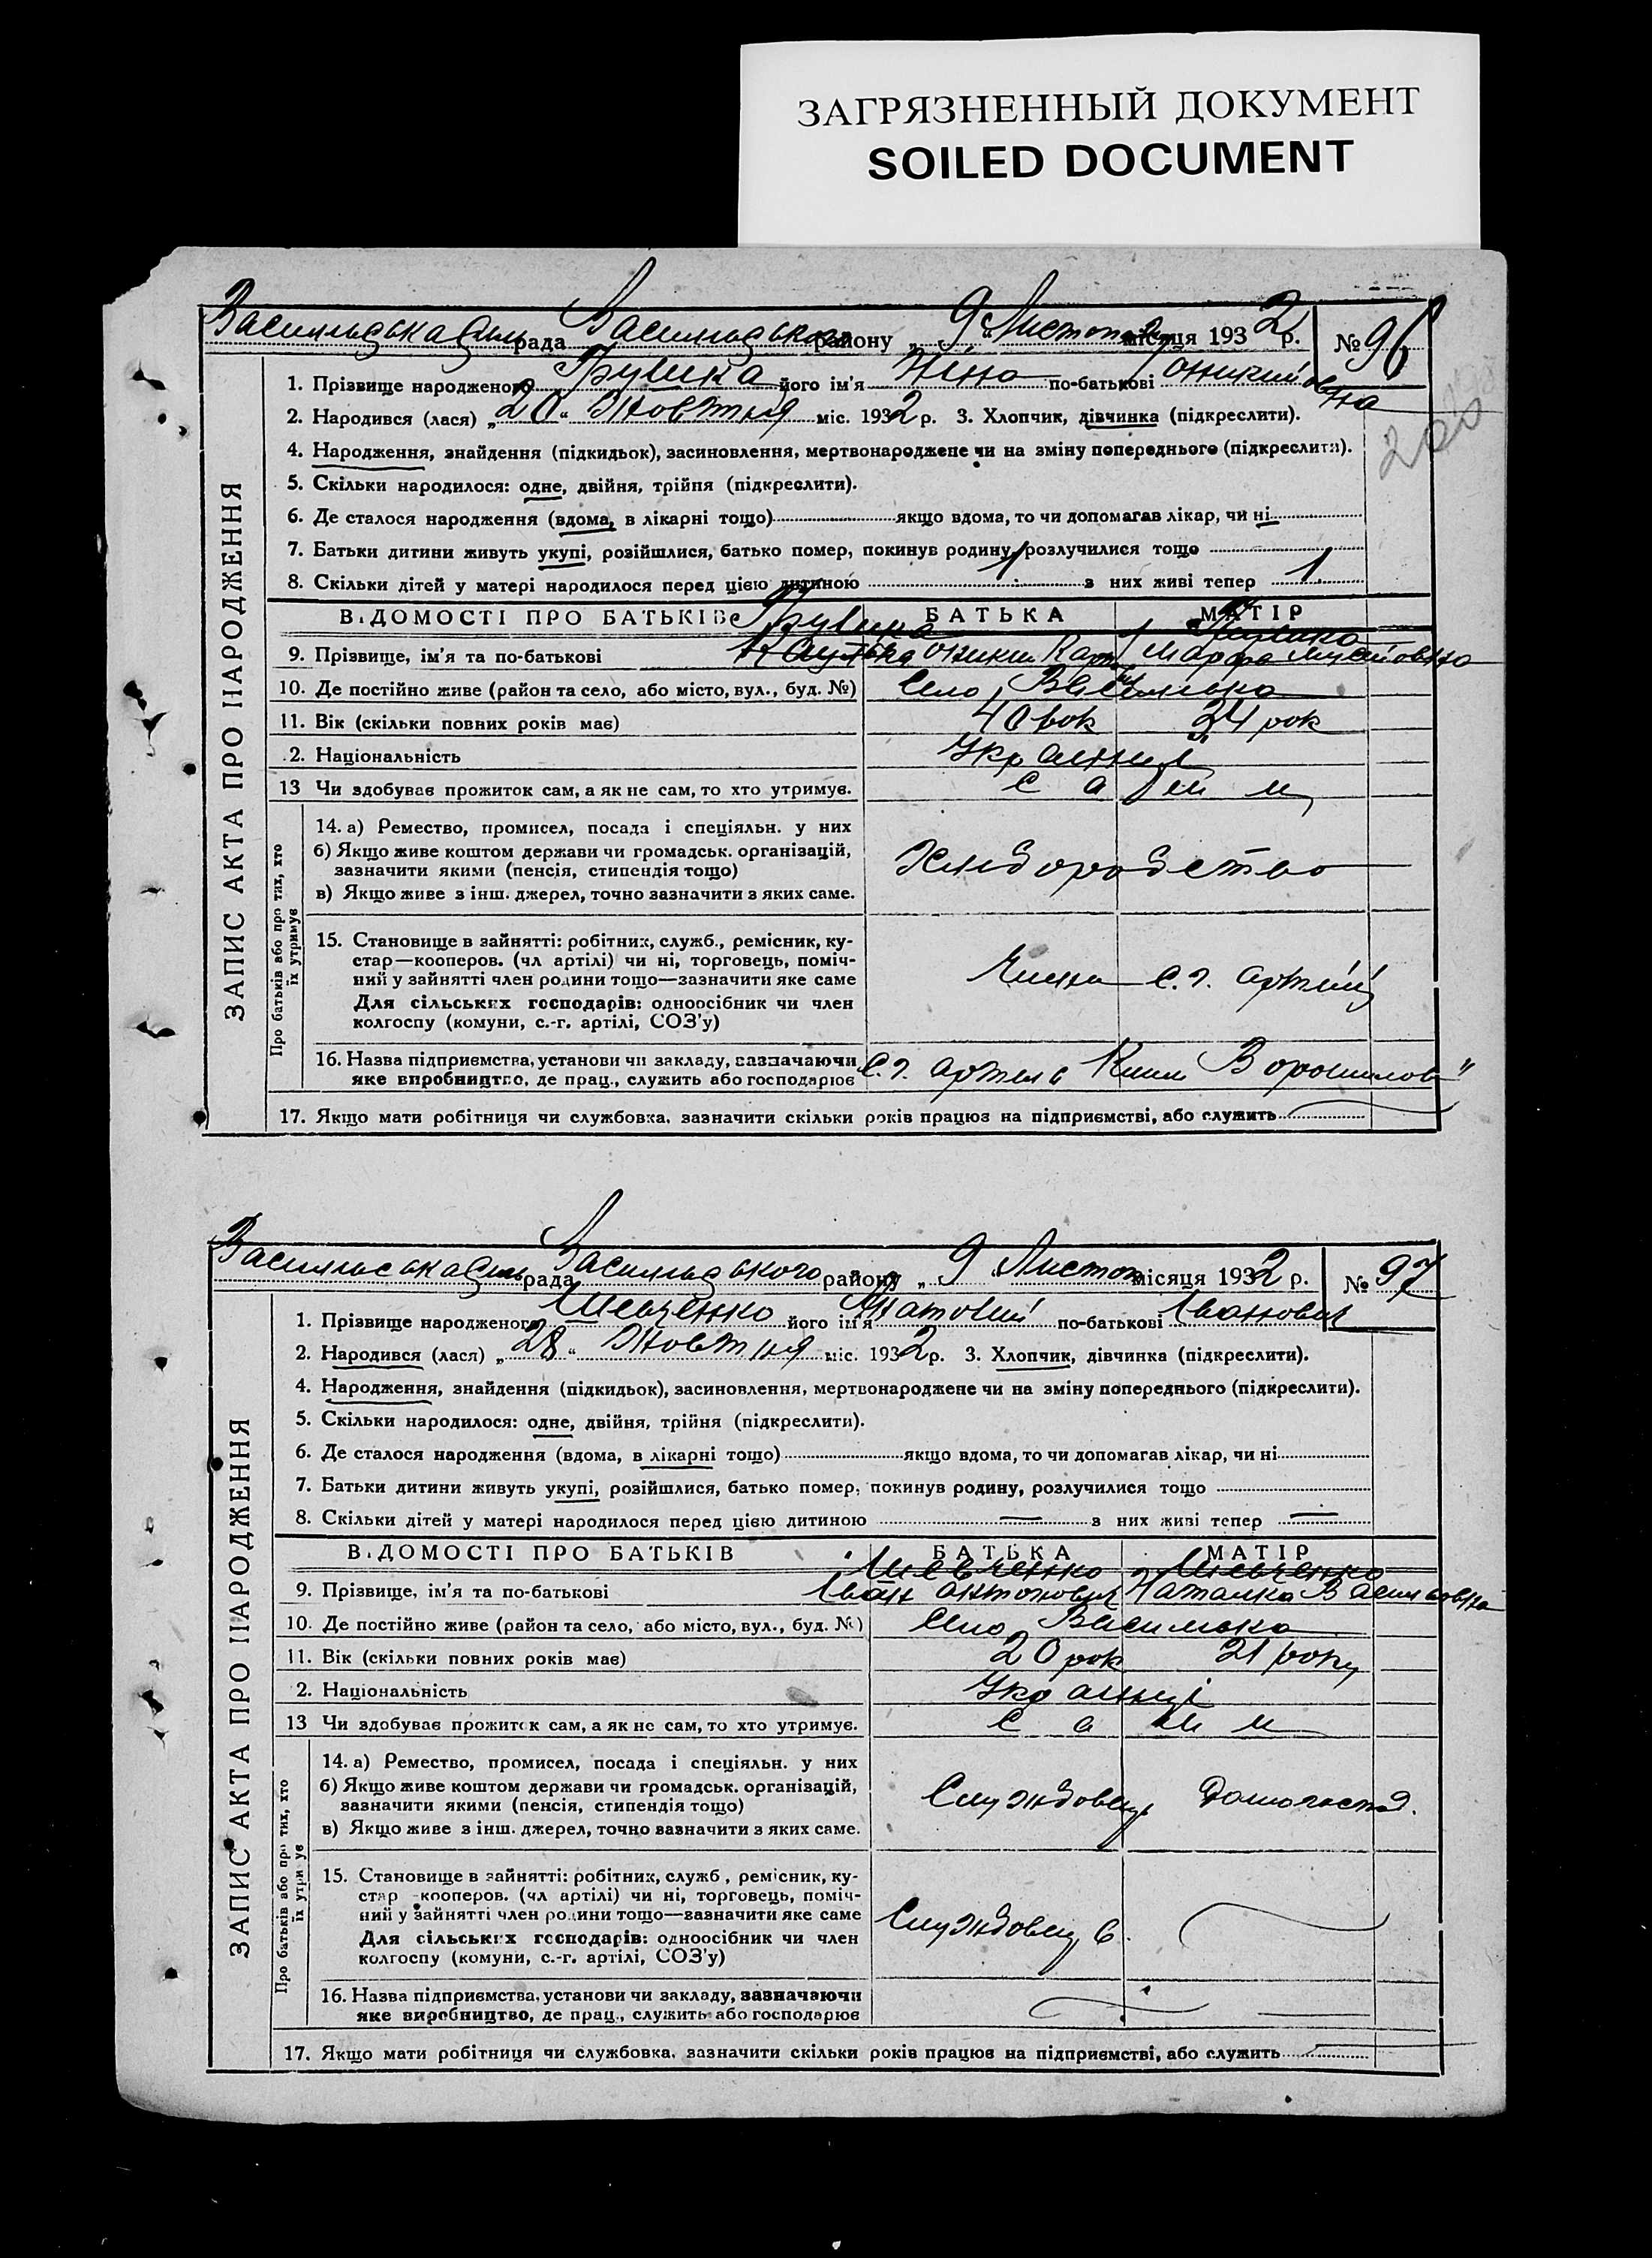 ЗАГРЯЗНЕННЫЙ ДОКУМЕНТ
SOILED DOCUMENT
рада району „9“ Листопада місяця 1932 р. № 96
1. Прізвище народженого його ім'я Ніна по-батькові
2. Народився (лася) „20“ Жовтня міс. 1932 р. 3. Хлопчик, дівчинка (підкреслити).
4. Народження, знайдення (підкидьок), засиновлення, мертвонароджене чи на зміну попереднього (підкреслити).
5. Скільки народилося: одне, двійня, трійня (підкреслити).
6. Де сталося народження (вдома, в лікарні тощо) якщо вдома, то чи допомагав лікар, чи ні
7. Батьки дитини живуть укупі, розійшлися, батько помер, покинув родину, розлучилися тощо
8. Скільки дітей у матері народилося перед цією дитиною 1 з них живі тепер 1
ВІДОМОСТІ ПРО БАТЬКІВ БАТЬКА МАТІР
9. Прізвище, ім'я та по-батькові Марфа
10. Де постійно живе (район та село, або місто, вул., буд. №) Село
11. Вік (скільки повних років має) 40 рок 34 рок
2. Національність Українці
13 Чи здобуває прожиток сам, а як не сам, то хто утримує. сами
ЗАПИС АКТА ПРО НАРОДЖЕННЯ
Про батьків або про тих, хто їх утримує
14. а) Ремество, промисел, посада і спеціяльн. у них
б) Якщо живе коштом держави чи громадськ. організацій,
зазначити якими (пенсія, стипендія тощо)
в) Якщо живе з інш. джерел, точно зазначити з яких саме.
Хліборобство
15. Становище в зайнятті: робітник, служб., ремісник, ку-
стар—кооперов. (чл артілі) чи ні, торговець, поміч-
ний у зайнятті член родини тощо—зазначити яке саме
Для сільських господарів: одноосібник чи член
колгоспу (комуни, с.-г. артілі, СОЗ'у)
Члени с.г. артілі
16. Назва підприємства, установи чи закладу, зазначаючи
яке виробництво, де прац., служить або господарює
с.г. артель Ворошилова"
17. Якщо мати робітниця чи службовка, зазначити скільки років працює на підприємстві, або служить
рада району „9 Листоп місяця 1932 р. № 97
1. Прізвище народженого Шевченко його ім'я Анатолій по-батькові Іванович
2. Народився (лася) „28“ Жовтня міс. 1932 р. 3. Хлопчик, дівчинка (підкреслити).
4. Народження, знайдення (підкидьок), засиновлення, мертвонароджене чи на зміну попереднього (підкреслити).
5. Скільки народилося: одне, двійня, трійня (підкреслити).
6. Де сталося народження (вдома, в лікарні тощо) якщо вдома, то чи допомагав лікар, чи ні
7. Батьки дитини живуть укупі, розійшлися, батько помер, покинув родину, розлучилися тощо
8. Скільки дітей у матері народилося перед цією дитиною — з них живі тепер —
ВІДОМОСТІ ПРО БАТЬКІВ БАТЬКА МАТІР
Шевченко Шевченко
9. Прізвище, ім'я та по-батькові Іван Антонович Наталка
10. Де постійно живе (район та село, або місто, вул., буд. №) Село
11. Вік (скільки повних років має) 20 рок 21 року
2. Національність Українці
13 Чи здобуває прожиток сам, а як не сам, то хто утримує. сами
ЗАПИС АКТА ПРО НАРОДЖЕННЯ
Про батьків або про тих, хто їх утримує
14. а) Ремество, промисел, посада і спеціяльн. у них
б) Якщо живе коштом держави чи громадськ. організацій,
зазначити якими (пенсія, стипендія тощо)
в) Якщо живе з інш. джерел, точно зазначити з яких саме.
Службовець
15. Становище в зайнятті: робітник, служб., ремісник, ку-
стар—кооперов. (чл артілі) чи ні, торговець, поміч-
ний у зайнятті член родини тощо—зазначити яке саме
Для сільських господарів: одноосібник чи член
колгоспу (комуни, с.-г. артілі, СОЗ'у)
Службовець
16. Назва підприємства, установи чи закладу, зазначаючи
яке виробництво, де прац., служить або господарює
17. Якщо мати робітниця чи службовка, зазначити скільки років працює на підприємстві, або служить